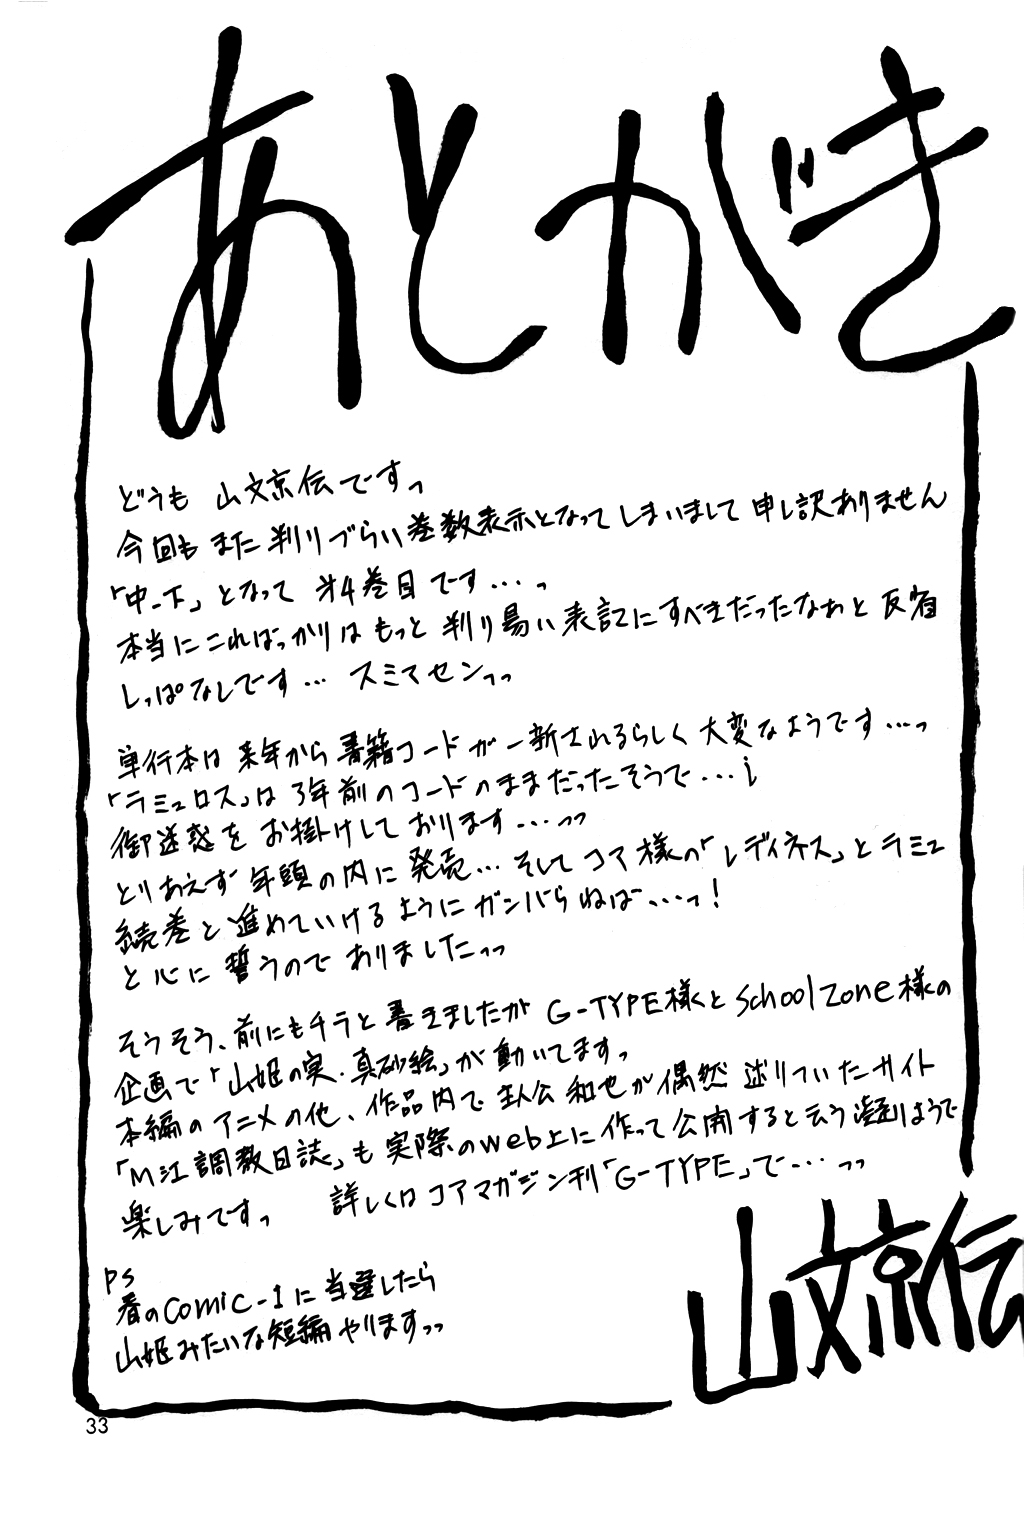 あとがき
どうも 山文京伝ですっ
今回も また 判りづらい巻数表示となってしまいまして 申し訳ありません
「中-下」となって 第4巻目です…っ
本当に こればっかりは もっと 判り易い表記にすべきだったなぁと 反省
しっぱなしです… スミマセンっっ
単行本は 来年から 書籍コードが一新されるらしく 大変なようです…っ
「ラミュロス」は 3年前のコードのままだったそうで…i
御迷惑を お掛けしております…っっ
とりあえず 年頭の内に発売… そして コア様の「レディネス」とラミュ
続巻と 進めていけるように ガンバらねば…っ!
と心に 誓うのでありましたっっ
そうそう、前にもチラと書きましたが G-TYPE様とschoolzone様の
企画で「山姫の実.真砂絵」が動いてますっ
本編のアニメの他、作品内で 主人公 和也が偶然 辿りついたサイト
「M江調教日誌」も 実際のweb上に作って公開すると云う凝りようで
楽しみですっ 詳しくは コアマガジン刊「G-TYPE」で…っっ
PS
春のcomic-1に当選したら
山姫みたいな短編やりますっっ
山文京伝
33